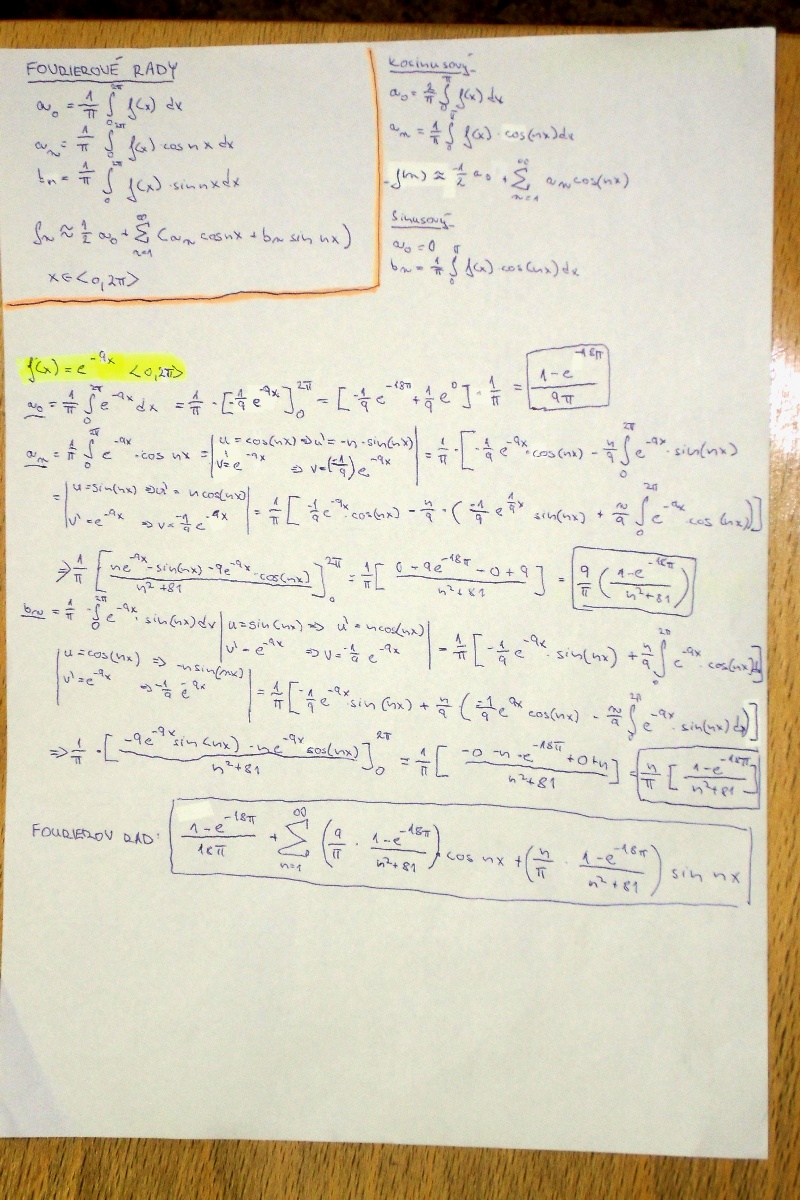 FOURIEROVÉ RADY
a₀ = 1/π ∫₀^2π f(x) dx
aₙ = 1/π ∫₀^2π f(x) · cos nx dx
bₙ = 1/π ∫₀^2π f(x) · sin nx dx
fₙ ≈ 1/2 a₀ + Σ_{n=1}^∞ (aₙ cos nx + bₙ sin nx)
x ∈ <0,2π>
Kocinusový
a₀ = 2/π ∫₀^π f(x) dx
aₙ = 1/π ∫₀^π f(x) · cos(nx) dx
f(n) ≈ -1/2 a₀ + Σ_{n=1}^∞ aₙ cos(nx)
Sinusový
a₀ = 0
bₙ = 1/π ∫₀^π f(x) · cos(nx) dx
f(x) = e^-9x <0,2π>
a₀ = 1/π ∫₀^2π e^-9x dx = 1/π · [-1/9 e^-9x]₀^2π = [-1/9 e^-18π + 1/9 e^0] · 1/π = (1-e^-18π)/9π
aₙ = 1/π ∫₀^2π e^-9x · cos nx = | u = cos(nx) ⇒ u' = -n · sin(nx) v' = e^-9x ⇒ v = (-1/9) e^-9x | = 1/π · [-1/9 e^-9x · cos(nx) - n/9 ∫₀^2π e^-9x · sin(nx)
= | u = sin(nx) ⇒ u' = n cos(nx) v' = e^-9x ⇒ v = -1/9 e^-9x | = 1/π [-1/9 e^-9x · cos(nx) - n/9 · (-1/9 e^1/9x sin(nx) + n/9 ∫₀^2π e^-9x · cos(nx))]
⇒ 1/π [(ne^-9x - sin(nx) - 9e^-9x · cos(nx))/(n²+81)]₀^2π = 1/π [(0 - 9e^-18π - 0 + 9)/(n²+81)] = 9/π ((1-e^-18π)/(n²+81))
bₙ = 1/π · ∫₀^2π e^-9x · sin(nx) dx | u = sin(nx) ⇒ u' = n cos(nx) v' = e^-9x ⇒ v = -1/9 e^-9x | = 1/π [-1/9 e^-9x · sin(nx) + n/9 ∫₀^2π e^-9x · cos(nx) dx]
| u = cos(nx) ⇒ -n sin(nx) v' = e^-9x ⇒ -1/9 e^-9x | = 1/π [-1/9 e^-9x · sin(nx) + n/9 (-1/9 e^9x cos(nx) - n/9 ∫₀^2π e^-9x · sin(nx) dx)]
⇒ 1/π · [(-9e^-9x sin(nx) - ne^-9x cos(nx))/(n²+81)]₀^2π = 1/π [(-0 - n · e^-18π + 0 + n)/(n²+81)] = n/π [(1-e^-18π)/(n²+81)]
FOURIEROV RAD: (1-e^-18π)/18π + Σ_{n=1}^∞ (9/π · (1-e^-18π)/(n²+81)) cos nx + (n/π · (1-e^-18π)/(n²+81)) sin nx